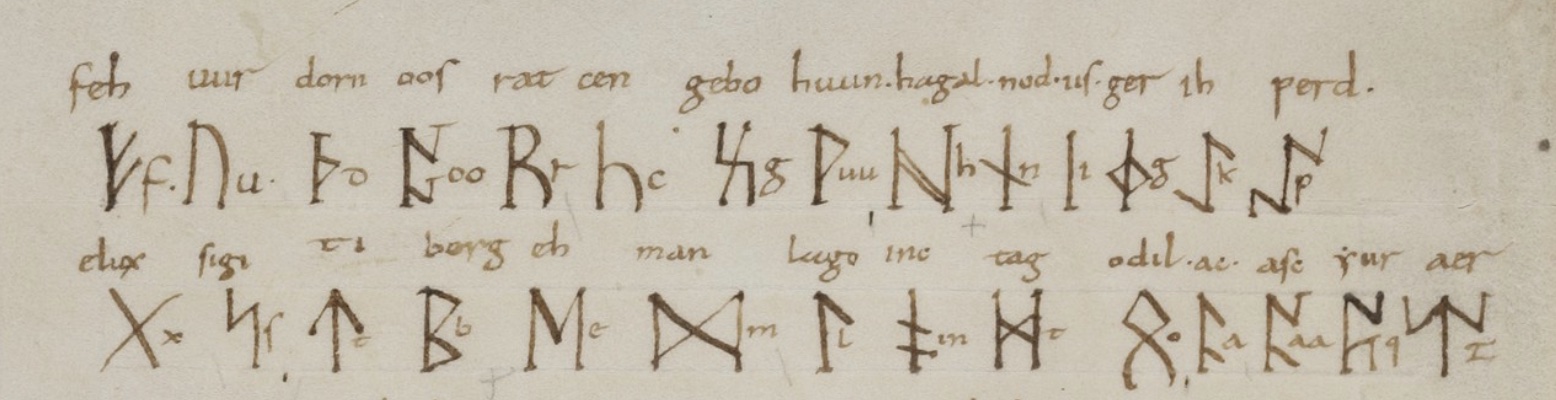 feh uur dorn oos rat cen gebo huun·hagal·nod·us·ger ih perd·
ᚠ f· ᚢ u· ᚦ d ᚩ oo ᚱ r ᚳ c ᚷ g ᚹ uu ᚻ h ᚾ n ᛁ i ᛄ g ᛇ k ᛈ p
elux sigi ti berg eh man lago inc tag odil·ac· asc yur aer
ᛉ x ᛋ s ᛏ t ᛒ b ᛖ e ᛗ m ᛚ l ᛝ in ᛞ t ᛟ o ᚪ a ᚫ aa ᚣ q ᛠ z